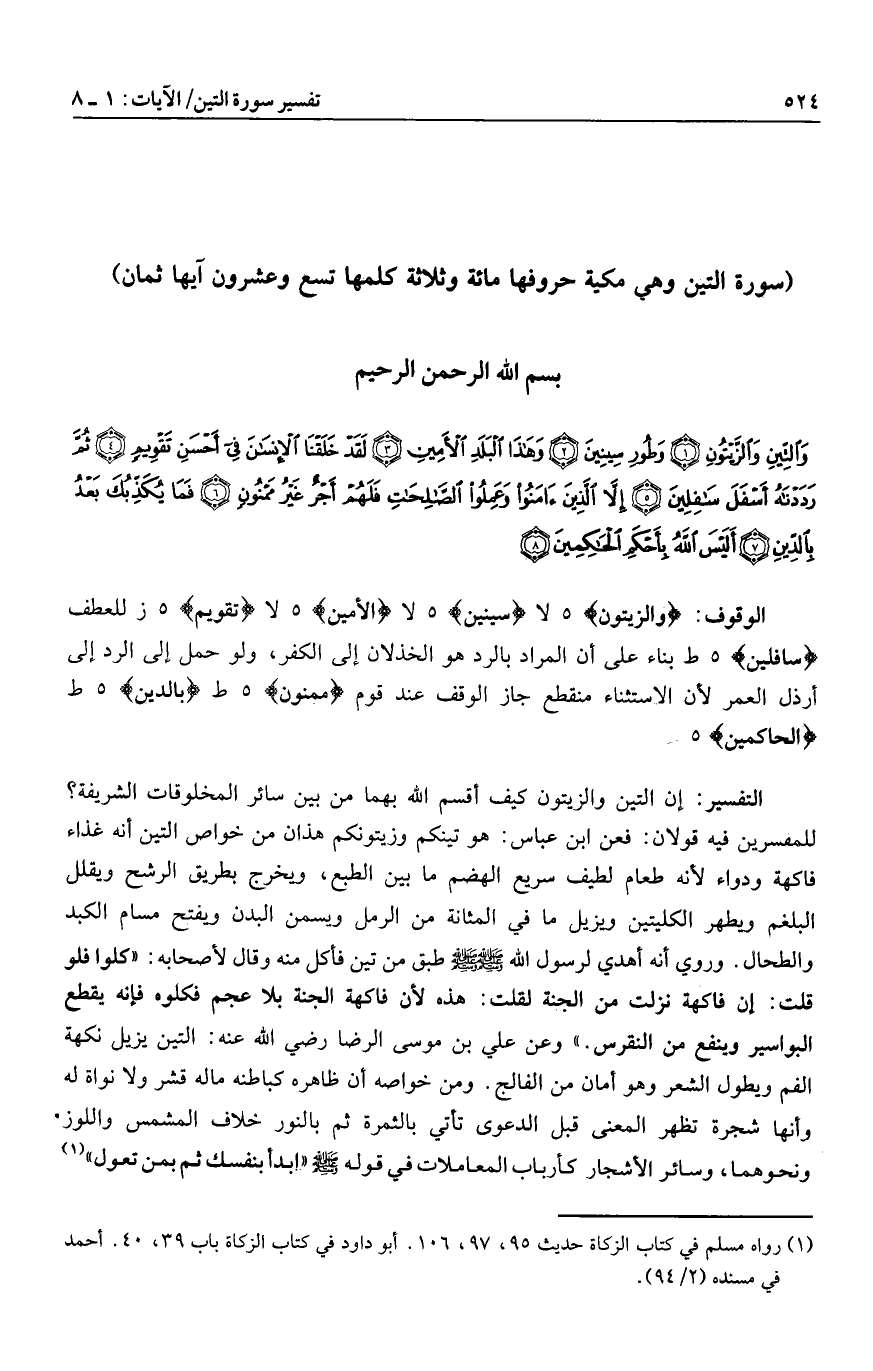 ٥٢٤ تفسير سورة التين/ الآيات: ١ ـ ٨
(سورة التين وهي مكية حروفها مائة وثلاثة كلمها تسع وعشرون آيها ثمان)
بسم الله الرحمن الرحيم
وَٱلتِّينِ وَٱلزَّيْتُونِ ﴿١﴾ وَطُورِ سِينِينَ ﴿٢﴾ وَهَٰذَا ٱلْبَلَدِ ٱلْأَمِينِ ﴿٣﴾ لَقَدْ خَلَقْنَا ٱلْإِنسَٰنَ فِىٓ أَحْسَنِ تَقْوِيمٍ ﴿٤﴾ ثُمَّ
رَدَدْنَٰهُ أَسْفَلَ سَٰفِلِينَ ﴿٥﴾ إِلَّا ٱلَّذِينَ ءَامَنُوا۟ وَعَمِلُوا۟ ٱلصَّٰلِحَٰتِ فَلَهُمْ أَجْرٌ غَيْرُ مَمْنُونٍ ﴿٦﴾ فَمَا يُكَذِّبُكَ بَعْدُ
بِٱلدِّينِ ﴿٧﴾ أَلَيْسَ ٱللَّهُ بِأَحْكَمِ ٱلْحَٰكِمِينَ ﴿٨﴾
الوقوف: ﴿والزيتون﴾ ٥ لا ﴿سينين﴾ ٥ لا ﴿الأمين﴾ ٥ لا ﴿تقويم﴾ ٥ ز للعطف
﴿سافلين﴾ ٥ ط بناء على أن المراد بالرد هو الخذلان إلى الكفر، ولو حمل إلى الرد إلى
أرذل العمر لأن الاستثناء منقطع جاز الوقف عند قوم ﴿ممنون﴾ ٥ ط ﴿بالدين﴾ ٥ ط
﴿الحاكمين﴾ ٥
التفسير: إن التين والزيتون كيف أقسم الله بهما من بين سائر المخلوقات الشريفة؟
للمفسرين فيه قولان: فعن ابن عباس: هو تينكم وزيتونكم هذان من خواص التين أنه غذاء
فاكهة ودواء لأنه طعام لطيف سريع الهضم ما بين الطبع، ويخرج بطريق الرشح ويقلل
البلغم ويطهر الكليتين ويزيل ما في المثانة من الرمل ويسمن البدن ويفتح مسام الكبد
والطحال. وروي أنه أهدي لرسول الله ﷺﷺ طبق من تين فأكل منه وقال لأصحابه: «كلوا فلو
قلت: إن فاكهة نزلت من الجنة لقلت: هذه لأن فاكهة الجنة بلا عجم فكلوه فإنه يقطع
البواسير وينفع من النقرس.» وعن علي بن موسى الرضا رضي الله عنه: التين يزيل نكهة
الفم ويطول الشعر وهو أمان من الفالج. ومن خواصه أن ظاهره كباطنه ماله قشر ولا نواة له
وأنها شجرة تظهر المعنى قبل الدعوى تأتي بالثمرة ثم بالنور خلاف المشمس واللوز
ونحوهما، وسائر الأشجار كأرباب المعاملات في قوله ﷺ «ابدأ بنفسك ثم بمن تعول»(١)
(١) رواه مسلم في كتاب الزكاة حديث ٩٥، ٩٧، ١٠٦. أبو داود في كتاب الزكاة باب ٣٩، ٤٠. أحمد
في مسنده (٢/ ٩٤).